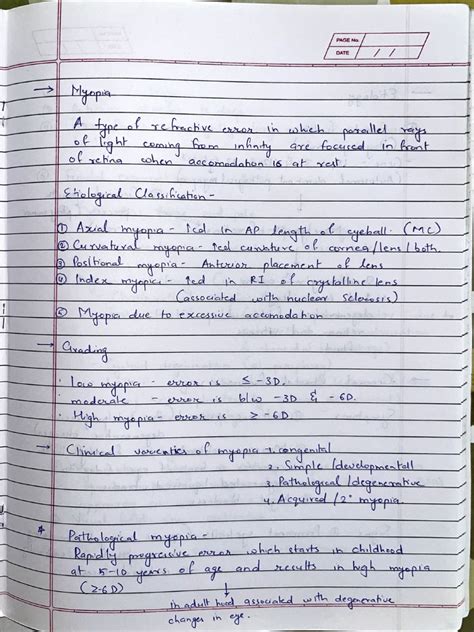 PAGE No.
DATE / /
→ Myopia
A type of refractive error in which parallel rays
of light coming from infinity are focused in front
of retina when accomodation is at rest.
Etiological Classification -
① Axial myopia - ↑ed in AP length of eyeball. (MC)
② Curvatural myopia - ↑ed curvature of cornea/lens/both.
③ Positional myopia - Anterior placement of lens
④ Index myopia - ↑ed in RI of crystalline lens
(associated with nuclear sclerosis)
⑤ Myopia due to excessive accomodation
→ Grading
· low myopia - error is ≤ -3D.
· moderate - error is b/w -3D & -6D.
· High myopia - error is ≥ -6D.
→ Clinical varieties of myopia 1. congenital
2. Simple /developmental
3. Pathological /degenerative
4. Acquired / 2° myopia.
* Pathological myopia -
Rapidly progressive error which starts in childhood
at 5-10 years of age and results in high myopia
(≥-6D) ↓
in adult hood, associated with degenerative
changes in eye.